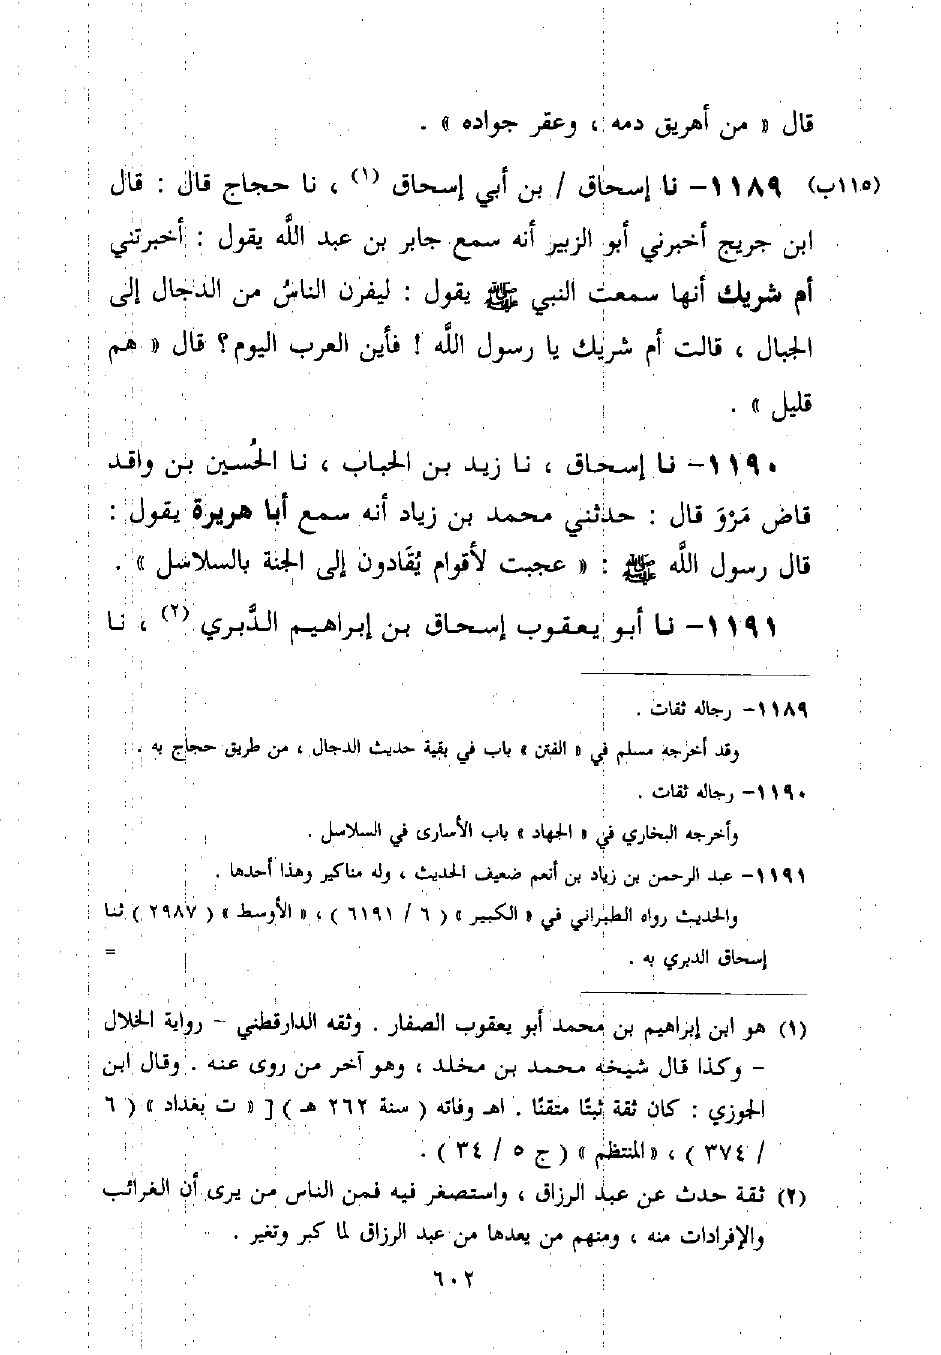 قال « من أهريق دمه ، وعقر جواده » .
(١١٥ب) ١١٨٩- نا إسحاق / بن أبي إسحاق (١) ، نا حجاج قال : قال
ابن جريج أخبرني أبو الزبير أنه سمع جابر بن عبد اللَّه يقول : أخبرتني
أم شريك أنها سمعت النبي ﷺ يقول : ليفرن الناسُ من الدجال إلى
الجبال ، قالت أم شريك يا رسول اللَّه ! فأين العرب اليوم؟ قال « هم
قليل » .
١١٩٠- نا إسحاق ، نا زيد بن الحباب ، نا الحُسين بن واقد
قاض مَرْوَ قال : حدثني محمد بن زياد أنه سمع أبا هريرة يقول :
قال رسول اللَّه ﷺ : « عجبت لأقوام يُقَادون إلى الجنة بالسلاسل » .
١١٩١- نا أبو يعقوب إسحاق بن إبراهيم الدَّبري (٢) ، نا
١١٨٩- رجاله ثقات .
وقد أخرجه مسلم في « الفتن » باب في بقية حديث الدجال ، من طريق حجاج به .
١١٩٠- رجاله ثقات .
وأخرجه البخاري في « الجهاد » باب الأسارى في السلاسل .
١١٩١- عبد الرحمن بن زياد بن أنعم ضعيف الحديث ، وله مناكير وهذا أحدها .
والحديث رواه الطبراني في « الكبير » ( ٦ / ٦١٩١ ) ، « الأوسط » ( ٢٩٨٧ ) ثنا
إسحاق الدبري به . =
(١) هو ابن إبراهيم بن محمد أبو يعقوب الصفار . وثقه الدارقطني - رواية الخلال
- وكذا قال شيخه محمد بن مخلد ، وهو آخر من روى عنه . وقال ابن
الجوزي : كان ثقة ثبتًا متقنًا . اهـ وفاته ( سنة ٢٦٢ هـ ) [ « ت بغداد » ( ٦
/ ٣٧٤ ) ، « المنتظم » ( ج ٥ / ٣٤ ) .
(٢) ثقة حدث عن عبد الرزاق ، واستصغر فيه فمن الناس من يرى أن الغرائب
والإفرادات منه ، ومنهم من يعدها من عبد الرزاق لما كبر وتغير .
٦٠٢